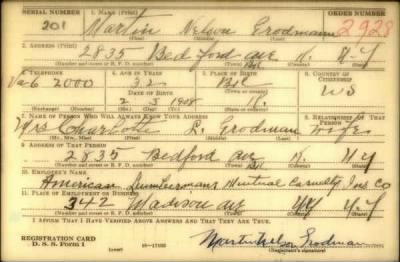 SERIAL NUMBER 1. NAME (Print) ORDER NUMBER
201 Martin Nelson Grodman 2928
(First) (Middle) (Last)
2. ADDRESS (Print)
2835 Bedford Ave Bkl K. N.Y
(Number and street or R. F. D. number) (Town) (County) (State)
3. TELEPHONE 4. AGE IN YEARS 5. PLACE OF BIRTH 6. COUNTRY OF CITIZENSHIP
2000 32 Bkl
DATE OF BIRTH US
2 3 1908 K.
(Exchange) (Number) (Mo.) (Day) (Yr.) (State or country)
7. NAME OF PERSON WHO WILL ALWAYS KNOW YOUR ADDRESS 8. RELATIONSHIP OF THAT PERSON
Mrs Charlotte R. Grodman Wife
(Mr., Mrs., Miss) (First) (Middle) (Last)
9. ADDRESS OF THAT PERSON
2835 Bedford Ave Bkl K. N.Y
(Number and street or R. F. D. number) (Town) (County) (State)
10. EMPLOYER'S NAME
American Lumbermans Mutual Casualty Ins Co
11. PLACE OF EMPLOYMENT OR BUSINESS
342 Madison Ave NY N.Y.
(Number and street or R. F. D. number) (Town) (County) (State)
I AFFIRM THAT I HAVE VERIFIED ABOVE ANSWERS AND THAT THEY ARE TRUE.
REGISTRATION CARD
D. S. S. Form 1 (over) Martin Nelson Grodman